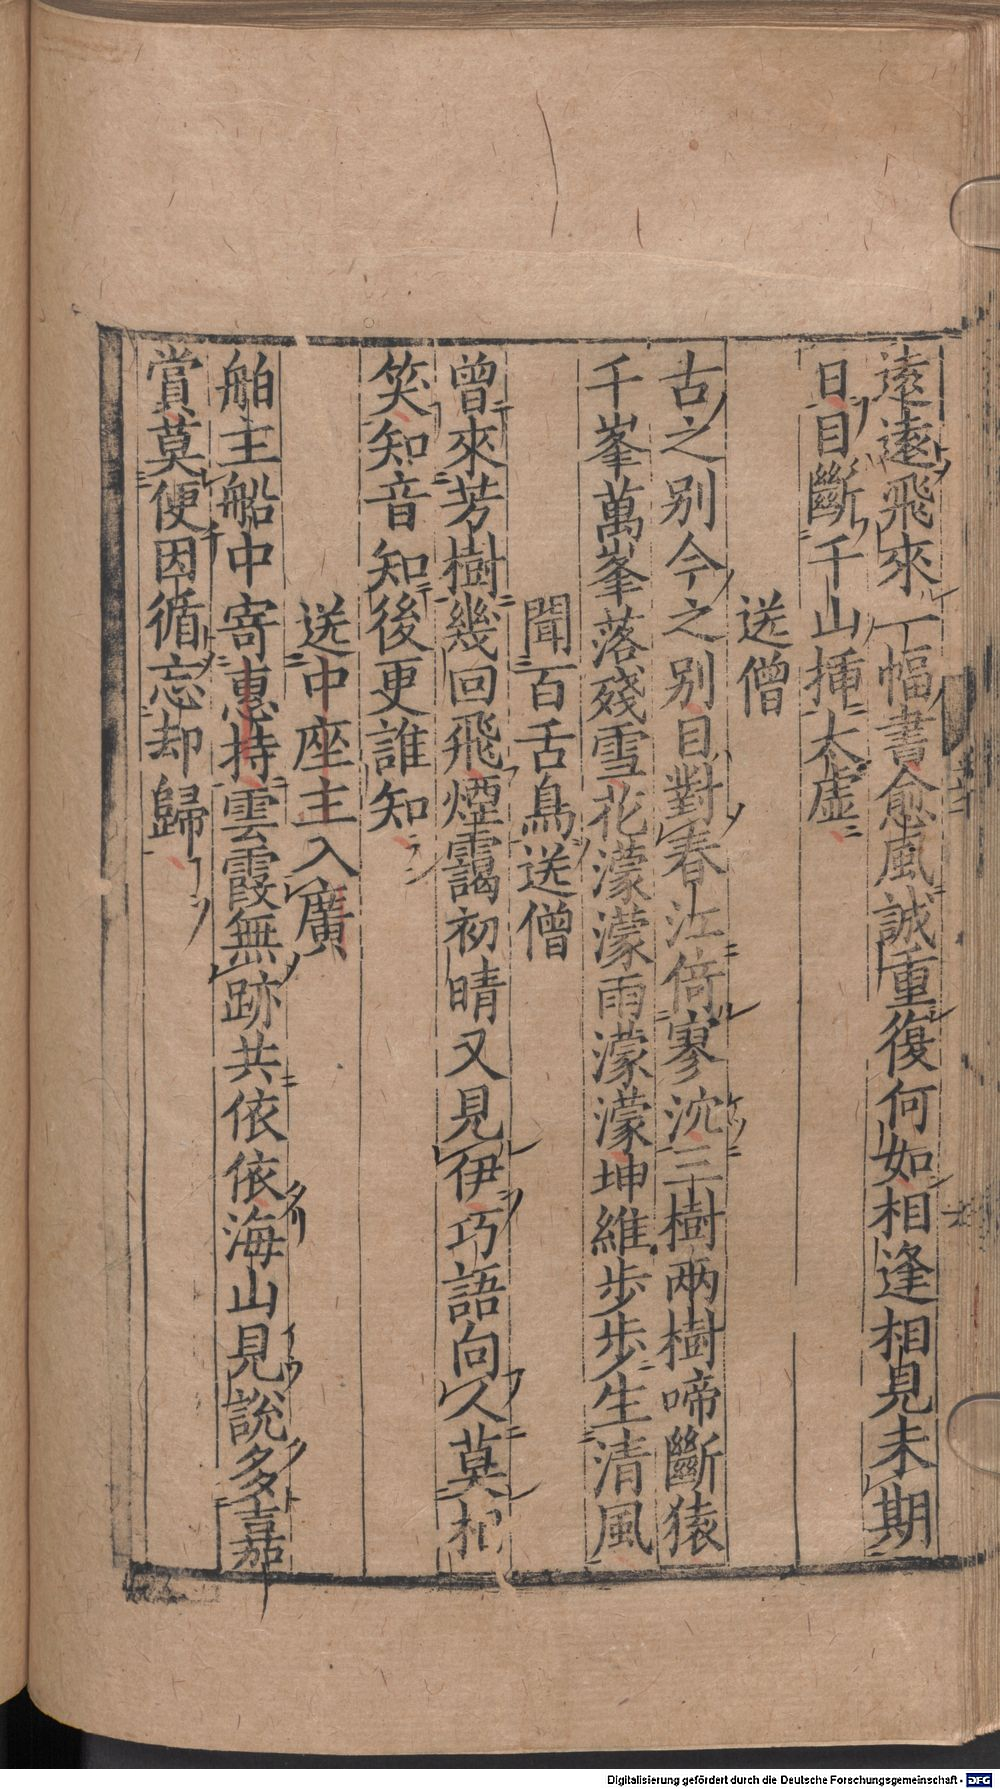 遠遠飛來一幅書愈風誠重復何如相逢相見未期
日目斷千山挿太虚
送僧
古之別今之別目對春江倚寥泬三樹兩樹啼斷猿
千峯萬峯落殘雪花濛濛雨濛濛坤維步步生清風
聞百舌鳥送僧
曾來芳樹幾回飛煙靄初晴又見伊巧語向人莫相
笑知音知後更誰知
送中座主入廣
舶主船中寄惠持雲霞無跡共依依海山見說多嘉
賞莫便因循忘却歸
Digitalisierung gefördert durch die Deutsche Forschungsgemeinschaft - DFG